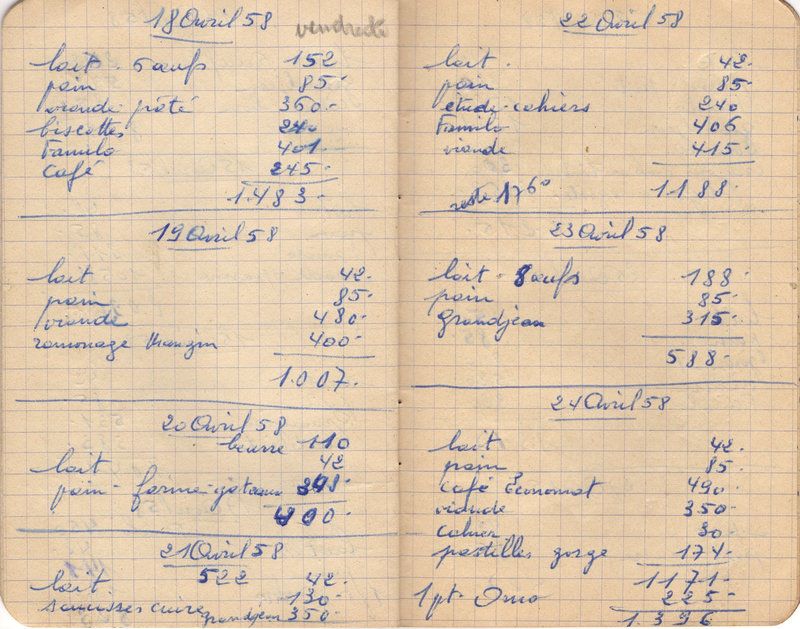 18 Avril 58 vendredi
lait - 5 œufs 152
pain 85-
viande pâté 360-
biscottes 240
Familo 401-
Café 245-
1.483-
19 Avril 58
lait 42-
pain 85-
viande 480-
ramonage Mangin 400-
1.007-
20 Avril 58
beurre 110
lait 42
pain - farine - gateaux
400-
21 Avril 58
522
lait 42-
saucisses cuire 130-
grandjean 350-
22 Avril 58
lait - 42-
pain 85-
étude - cahiers 240
Familo 406
viande 415-
reste 17 60 1188-
23 Avril 58
lait - 8 œufs 188
pain 85-
grandjean 315-
588-
24 Avril 58
lait 42-
pain 85-
café Economat 490-
viande 350-
cahier 30
pastilles gorge 174-
1171-
1 pt - Omo 225-
1.396